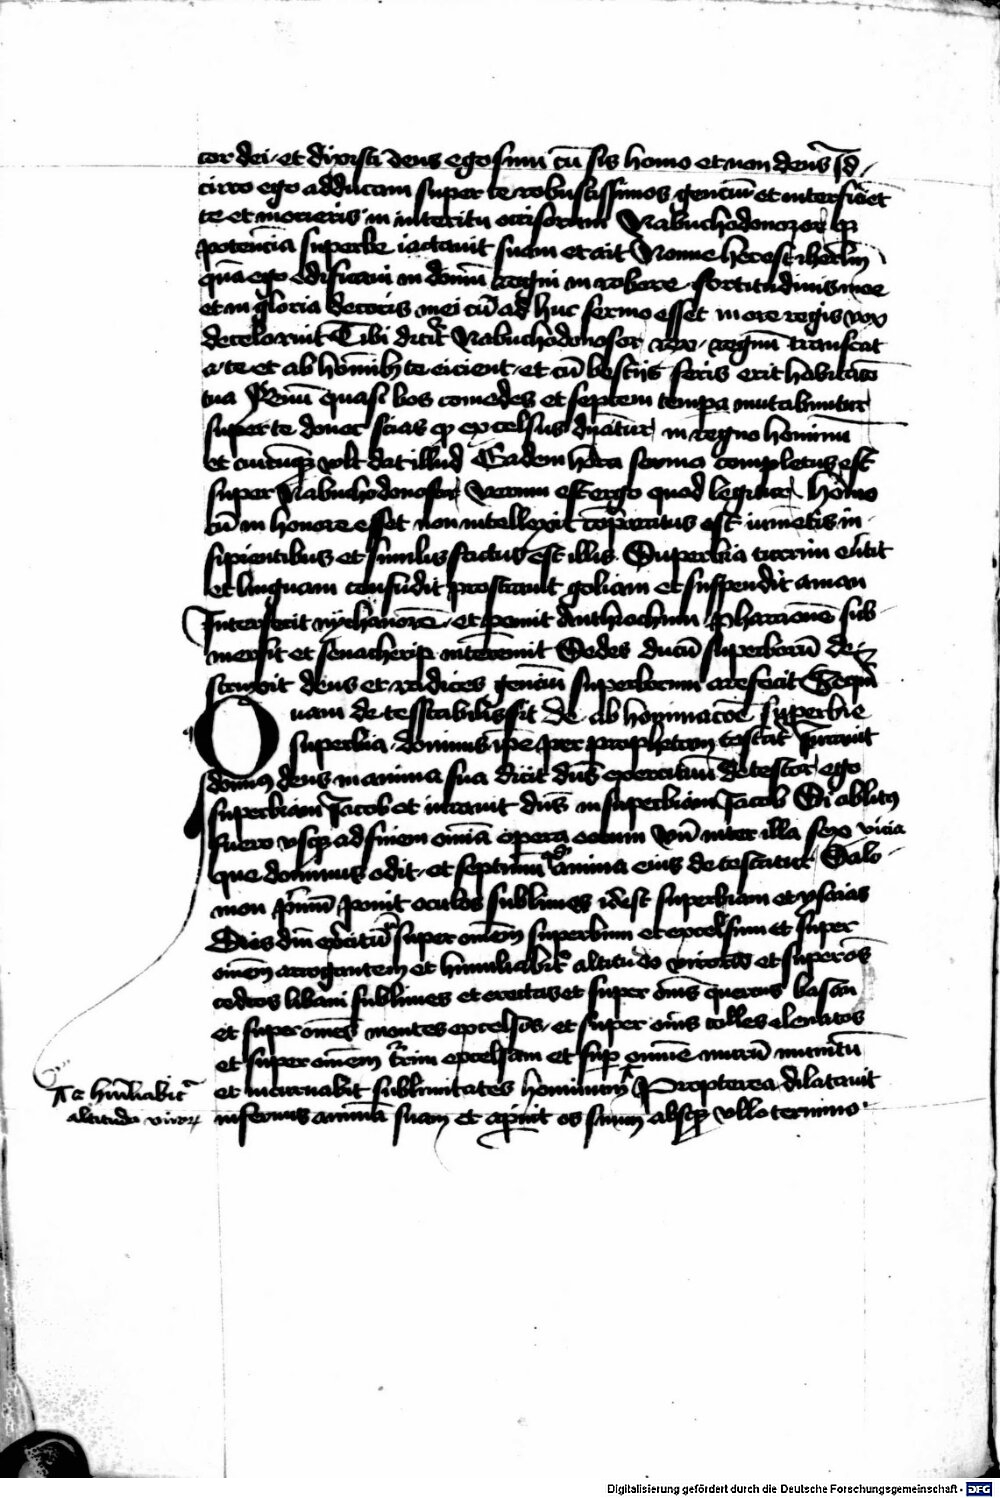 cor dei · et dixisti deus ego sum cū sis homo et non deus Id
circo ego adducam super te robustissimos genciū et interficiēt
te et morieris in interitu occisorum Nabuchodonozor qꝫ
potencia superbe iactauit suam et ait Nonne hec est
quā ego edificaui in domū regni in robore fortitudinis mee
et in gloria decoris mei cū ad huc sermo esset in ore regis vox
de celo ruit Tibi dicit᷑ Nabuchodonosor rex · regnū transeat
a · te et ab hoīnibꝫ te eicient · et cū bestijs feris erit habitatō
tua fenū quasi bos comedes et septem tempa mutabuntur
super te donec scias qꝫ excelsus dnatur in regno hominū
et cuicūqꝫ volt dat illud Eadem hora sermo completus est
super Nabuchodonosor Verum est ergo quod legitur Homo
cū in honore esset non intellexit cōparatus est iumētis in
sipientibus et similis factus est illis Superbia turrim
et linguam confudit prostrauit goliam et suspendit aman
Interfecit nychanorē · et anthiochum pharaonē sub
mersit et senacherip interemit Sedes ducū superborū de
struxit deus et radices genciū superborum arefecit Sequit᷑
Quam detestabilis sit de abhominacōe superbie
superbia dominus ipe per prophetam testat᷑ Iurauit
dominus deus in anima sua dicit dus exercituū detestor ego
superbiam Jacob et iurauit dns in superbiam Jacob Si oblitꝰ
fuero vsqꝫ ad finem omīa opera eorum Vn inter illa sex vicia
que dominus odit · et septimū anima eius detestatur Salo
mon pīmū ponit oculos sublimes idest superbiam et ysaias
Dies dni exercituū super omēm superbum et excelsum et super
omēm arrogantem et humiliabit᷑ altitudo et super oēs
cedros libani sublimes et erectas et super omīs quercus basan
et super omēs montes excelsos · et super omīs colles eleuatos
et super omēm turrim excelsam et sup omnē murū munitū
et incuruabit sublimitates hominum Propterea dilatauit
infernus animā suam et aperuit os suum absqꝫ vllo termino ·
et humiliabit᷑
altitudo viroꝝ
Digitalisierung gefördert durch die Deutsche Forschungsgemeinschaft - DFG